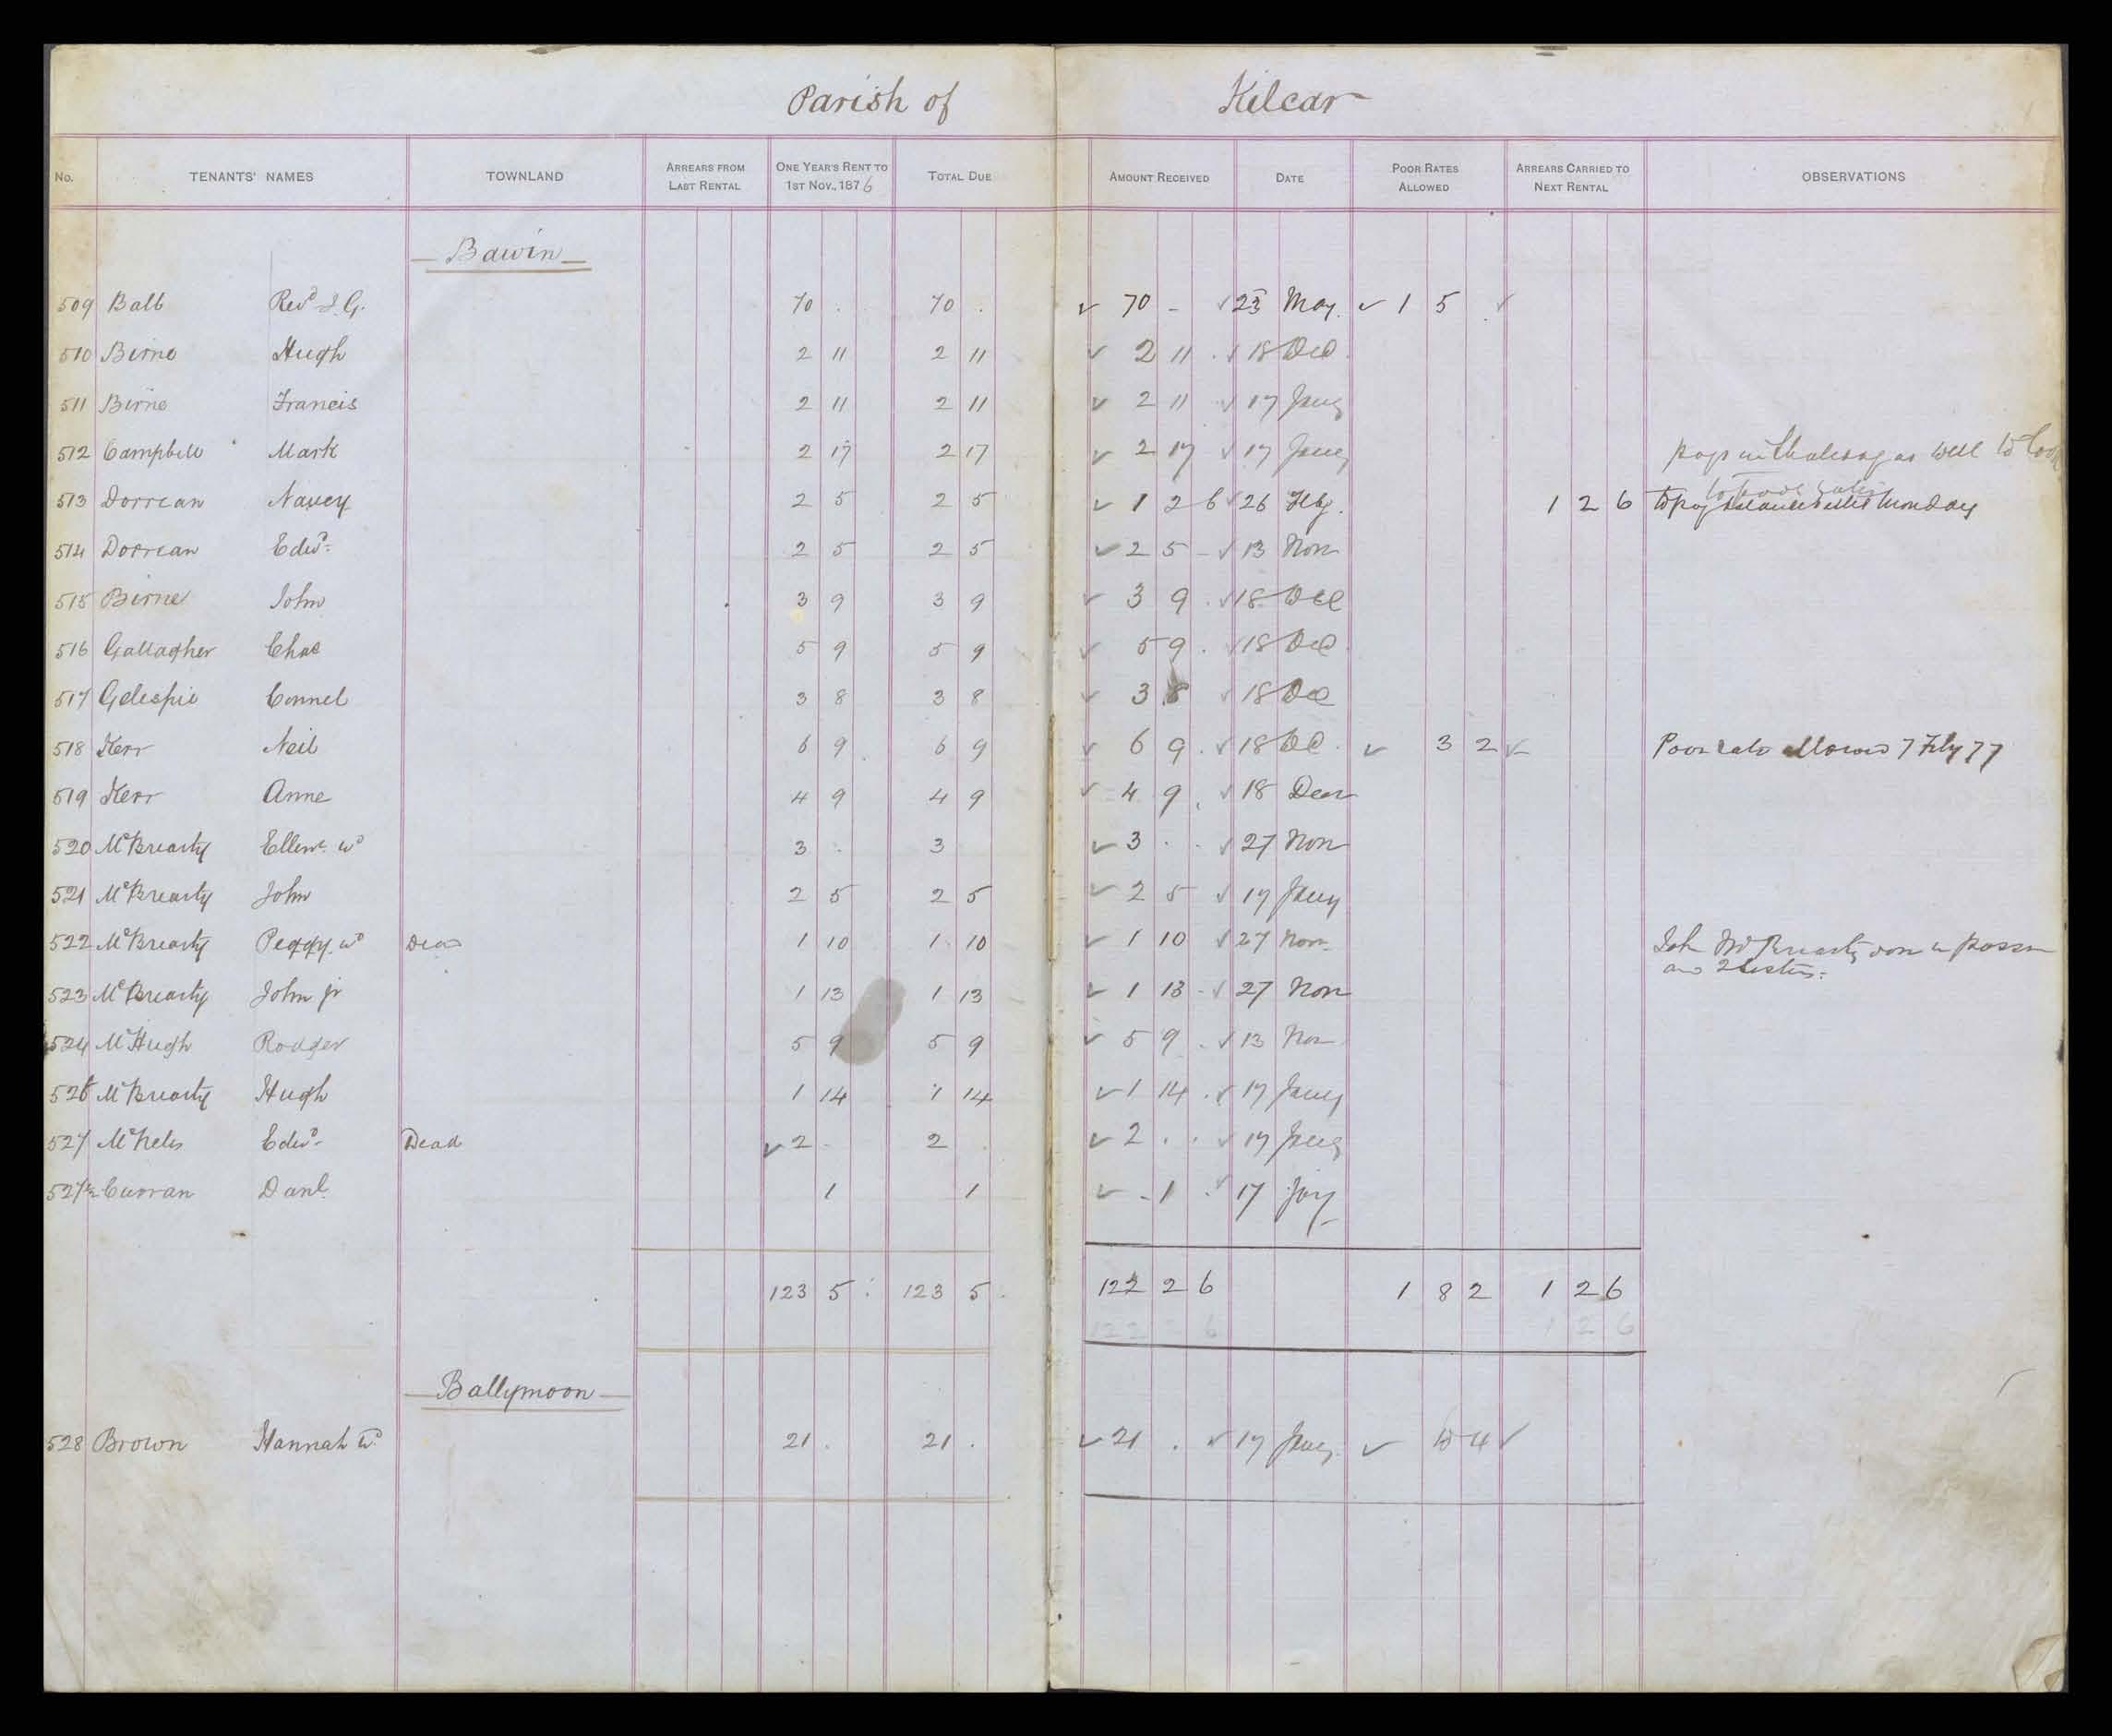 Parish of Kilcar
No. TENANTS' NAMES TOWNLAND ARREARS FROM LAST RENTAL ONE YEAR'S RENT TO 1ST NOV., 1876 TOTAL DUE AMOUNT RECEIVED DATE POOR RATES ALLOWED ARREARS CARRIED TO NEXT RENTAL OBSERVATIONS
Bawin
509 Balb Revd J. G. 70 . 70 . ✓ 70 - ✓ 23 May. ✓ 1 5 . ✓
510 Birne Hugh 2 11 2 11 ✓ 2 11 . ✓ 18 Dec.
511 Birne Francis 2 11 2 11 ✓ 2 11 ✓ 17 Jany
512 Campbell Mark 2 17 2 17 ✓ 2 17 ✓ 17 Jany pays as well to
513 Dorrean Nancy 2 5 2 5 ✓ 1 2 6 ✓ 26 Feby. 1 2 6 To pay balance Monday
514 Dorrean Edwd. 2 5 2 5 ✓ 2 5 - ✓ 13 Nov
515 Birne John 3 9 3 9 ✓ 3 9 . ✓ 18 Dec
516 Gallagher Chas 5 9 5 9 ✓ 5 9 . ✓ 18 Dec.
517 Gelespie Connel 3 8 3 8 ✓ 3 8 ✓ 18 Dec
518 Kerr Neil 6 9 . 6 9 ✓ 6 9 . ✓ 18 Dec. ✓ 3 2 ✓ Poor rate allowed 7 Feby 77
519 Kerr Anne 4 9 4 9 ✓ 4 9 . ✓ 18 Decr
520 McBrearty Ellen. wd 3 . 3 ✓ 3 . . ✓ 27 Nov
521 McBrearty John 2 5 2 5 ✓ 2 5 ✓ 17 Jany
522 McBrearty Peggy. wd Dead 1 10 1 10 ✓ 1 10 ✓ 27 Nov. John McBrearty son in possn
and 2 sisters.
523 McBrearty John jr 1 13 1 13 ✓ 1 13 - ✓ 27 Nov
524 McHugh Rodger 5 9 5 9 ✓ 5 9 . ✓ 13 Nov
526 McBrearty Hugh 1 14 1 14 ✓ 1 14 . ✓ 17 Jany
527 Edwd. Dead ✓ 2 - 2 . ✓ 2 . . ✓ 17 Jany
527½ Curran Danl. 1 1 ✓ - 1 . ✓ 17 Jany
123 5 . 123 5 . 122 2 6 1 8 2 1 2 6
122 2 6 1 2 6
Ballymoon
528 Brown Hannah wd 21 . 21 . ✓ 21 . ✓ 17 Jany. ✓ 10 4 ✓